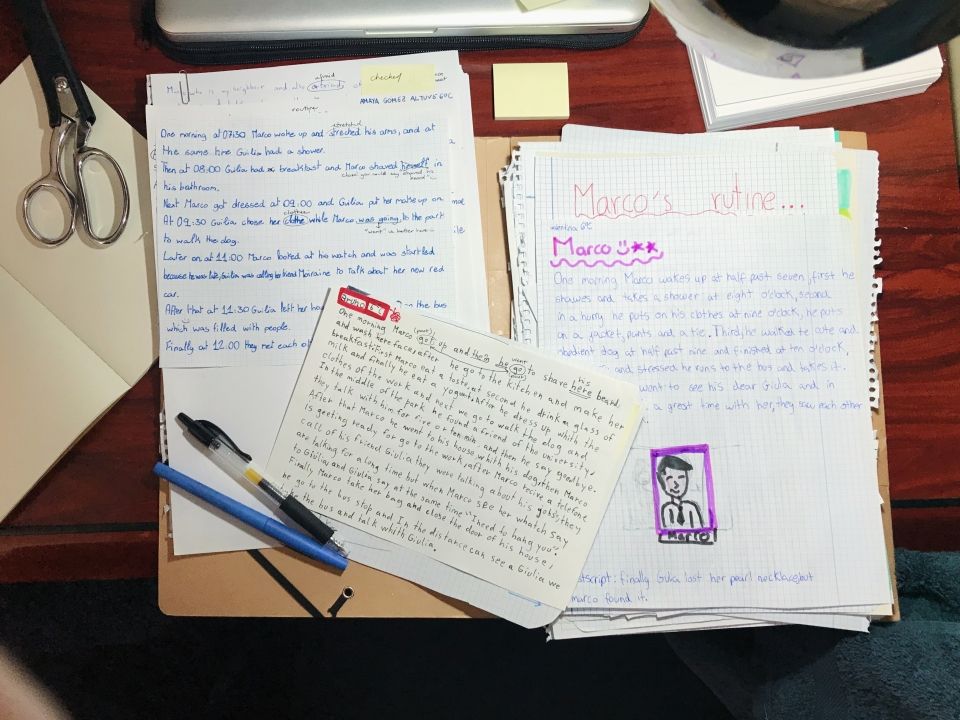 afraid
is my neighbour and also
checked
AMAYA GOMEZ ALTUVE 6ºC
routine
stretched
One morning at 07:30 Marco woke up and streched his arms, and at
the same time Guilia had a shower.
Then at 08:00 Guilia had breakfast and Marco shaved himself in
his bathroom.
Next Marco got dressed at 09:00 and Guilia put her make up on
clothes
At 09:30 Guilia chose her clothe while Marco was going to the park
"went" is better here
to walk the dog.
Later on at 11:00 Marco looked at his watch and was startled
because he was late, Guilia was calling her friend Moiraine to Talk about her new red
car.
After that at 11:30 Guilia left her on the bus
which was filled with people.
Finally at 12:00 they met each
6ºC
(past) went his
One morning Marco got up and then he go to shave here beard
and wash here face, after he go to the kitchen and make her
past
breakfast: first Marco eat a toste, at second he drink a glass of
milk and finally he eat a yogourt, after he dress up whith the
clothes of the work and next we go to walk the dog and
In the middle of the park he found a friend of the university,
they talk with him for five or ten min. and then he say goodbye.
After that Marco he went to his house whith his dog, then Marco
is geeting ready for go to the work, after Marco recive a telefone
call of his friend Giulia they were talking about his jobs, they
are talking for a long time but when Marco see her whatch say
to Giulia and Giulia say at the same time "I need to hang you".
Finally Marco take her bag and close the door of his house,
he go to the bus stop and In the distance can see a Giulia we
the bus and talk whith Giulia.
Marco's rutine...
6ºC
Marco
One morning Marco wakes up at half past seven, first he
shaves and takes a shower at eight o'clock, second
in a hurry he puts on his clothes at nine o'clock, he puts
on a jacket, pants and a tie. Third, he walked te cute and
obedient dog at half past nine and finished at ten o'clock,
and stressed he runs to the bus and takes it.
went to see his dear Giulia and in
a great time with her, they saw each other
Marco
stscript: finally Giulia lost her pearl necklace, but
marco found it.